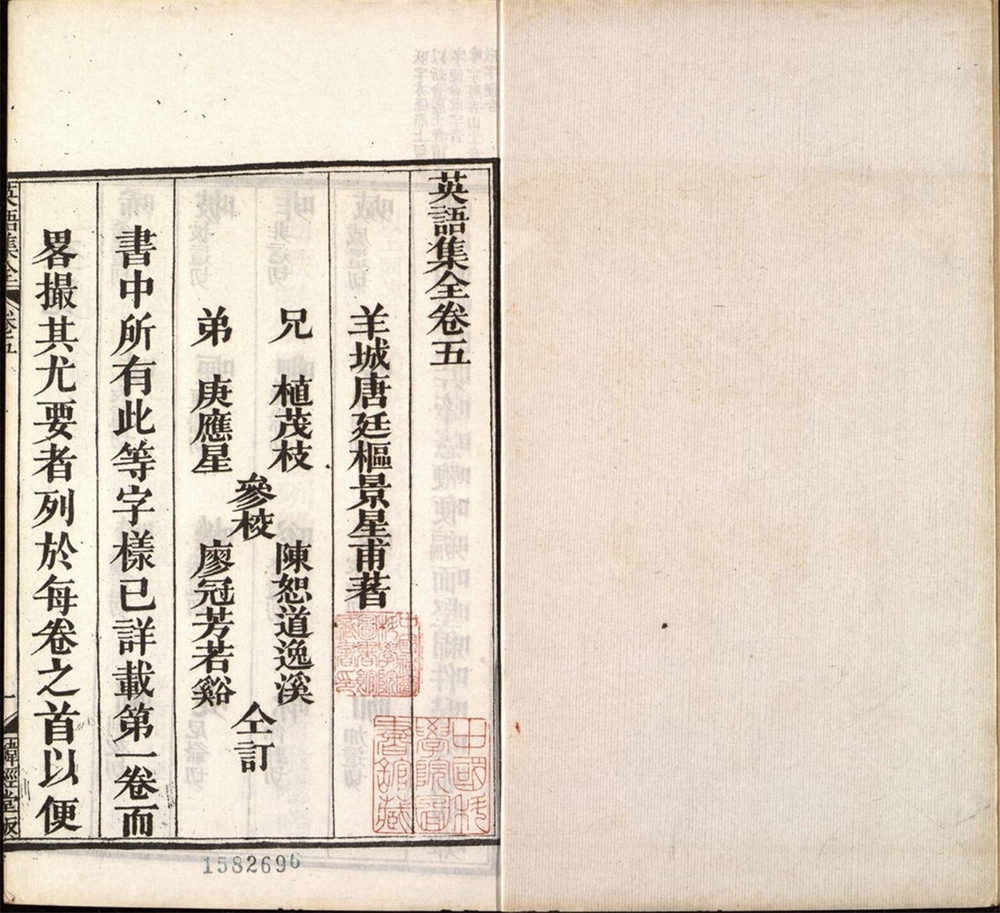 英語集全卷五
羊城唐廷樞景星甫著
兄 植茂枝
弟 庚應星
參校
陳恕道逸溪
廖冠芳若谿
仝訂
書中所有此等字樣已詳載第一卷而
畧撮其尤要者列於每卷之首以便
英語集全 卷五
緯經堂板
中國科學院圖書館藏
1582696